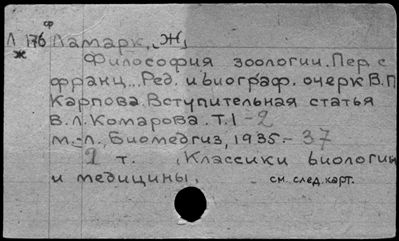 ф
Л 176 Ламарк, Ж.
ж
Философия зоологии. Пер. с
франц... Ред. и биограф. очерк В.П.
Карпова. Вступительная статья
В.Л. Комарова. Т. 1-2
М.-Л., Биомедгиз, 1935.-37
2 т. (Классики биологии
и медицины.
см. след. карт.